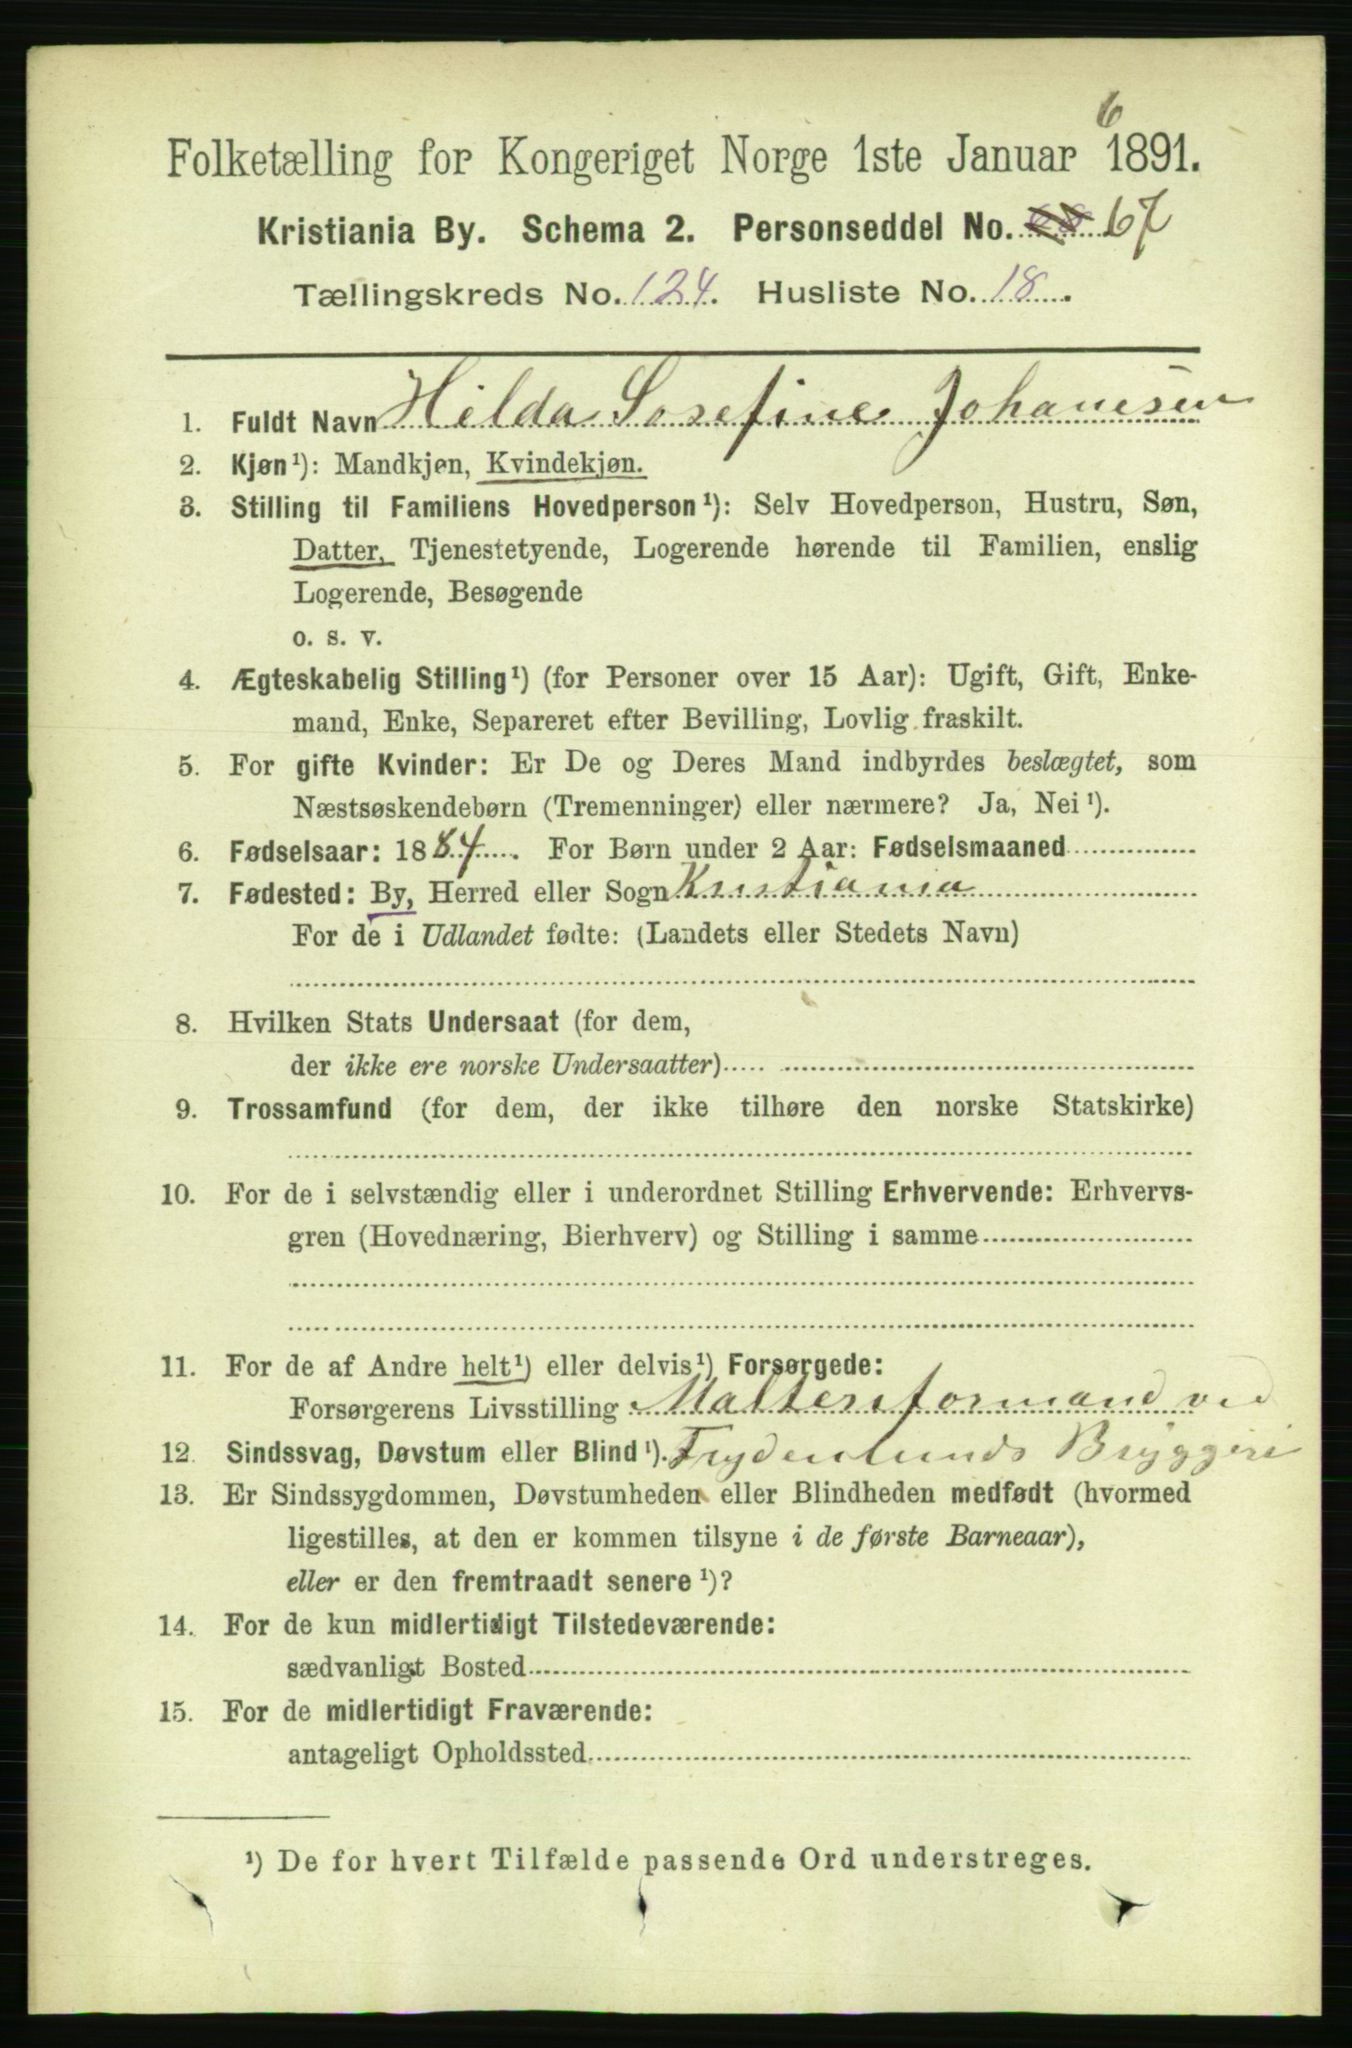 6
Folketælling for Kongeriget Norge 1ste Januar 1891.
Kristiania By. Schema 2. Personseddel No. 67
Tællingskreds No. 124. Husliste No. 18.
1. Fuldt Navn Hilda Josefine Johanesen
2. Kjøn¹): Mandkjøn, Kvindekjøn.
3. Stilling til Familiens Hovedperson¹): Selv Hovedperson, Hustru, Søn,
Datter, Tjenestetyende, Logerende hørende til Familien, enslig
Logerende, Besøgende
o. s. v.
4. Ægteskabelig Stilling¹) (for Personer over 15 Aar): Ugift, Gift, Enke-
mand, Enke, Separeret efter Bevilling, Lovlig fraskilt.
5. For gifte Kvinder: Er De og Deres Mand indbyrdes beslægtet, som
Næstsøskendebørn (Tremenninger) eller nærmere? Ja, Nei¹).
6. Fødselsaar: 1884. For Børn under 2 Aar: Fødselsmaaned
7. Fødested: By, Herred eller Sogn Kristiania
For de i Udlandet fødte: (Landets eller Stedets Navn)
8. Hvilken Stats Undersaat (for dem,
der ikke ere norske Undersaatter)
9. Trossamfund (for dem, der ikke tilhøre den norske Statskirke)
10. For de i selvstændig eller i underordnet Stilling Erhvervende: Erhvervs-
gren (Hovednæring, Bierhverv) og Stilling i samme
11. For de af Andre helt¹) eller delvis¹) Forsørgede:
Forsørgerens Livsstilling Malteriformand ved
12. Sindssvag, Døvstum eller Blind¹). Frydenlunds Bryggeri
13. Er Sindssygdommen, Døvstumheden eller Blindheden medfødt (hvormed
ligestilles, at den er kommen tilsyne i de første Barneaar),
eller er den fremtraadt senere¹)?
14. For de kun midlertidigt Tilstedeværende:
sædvanligt Bosted
15. For de midlertidigt Fraværende:
antageligt Opholdssted
¹) De for hvert Tilfælde passende Ord understreges.